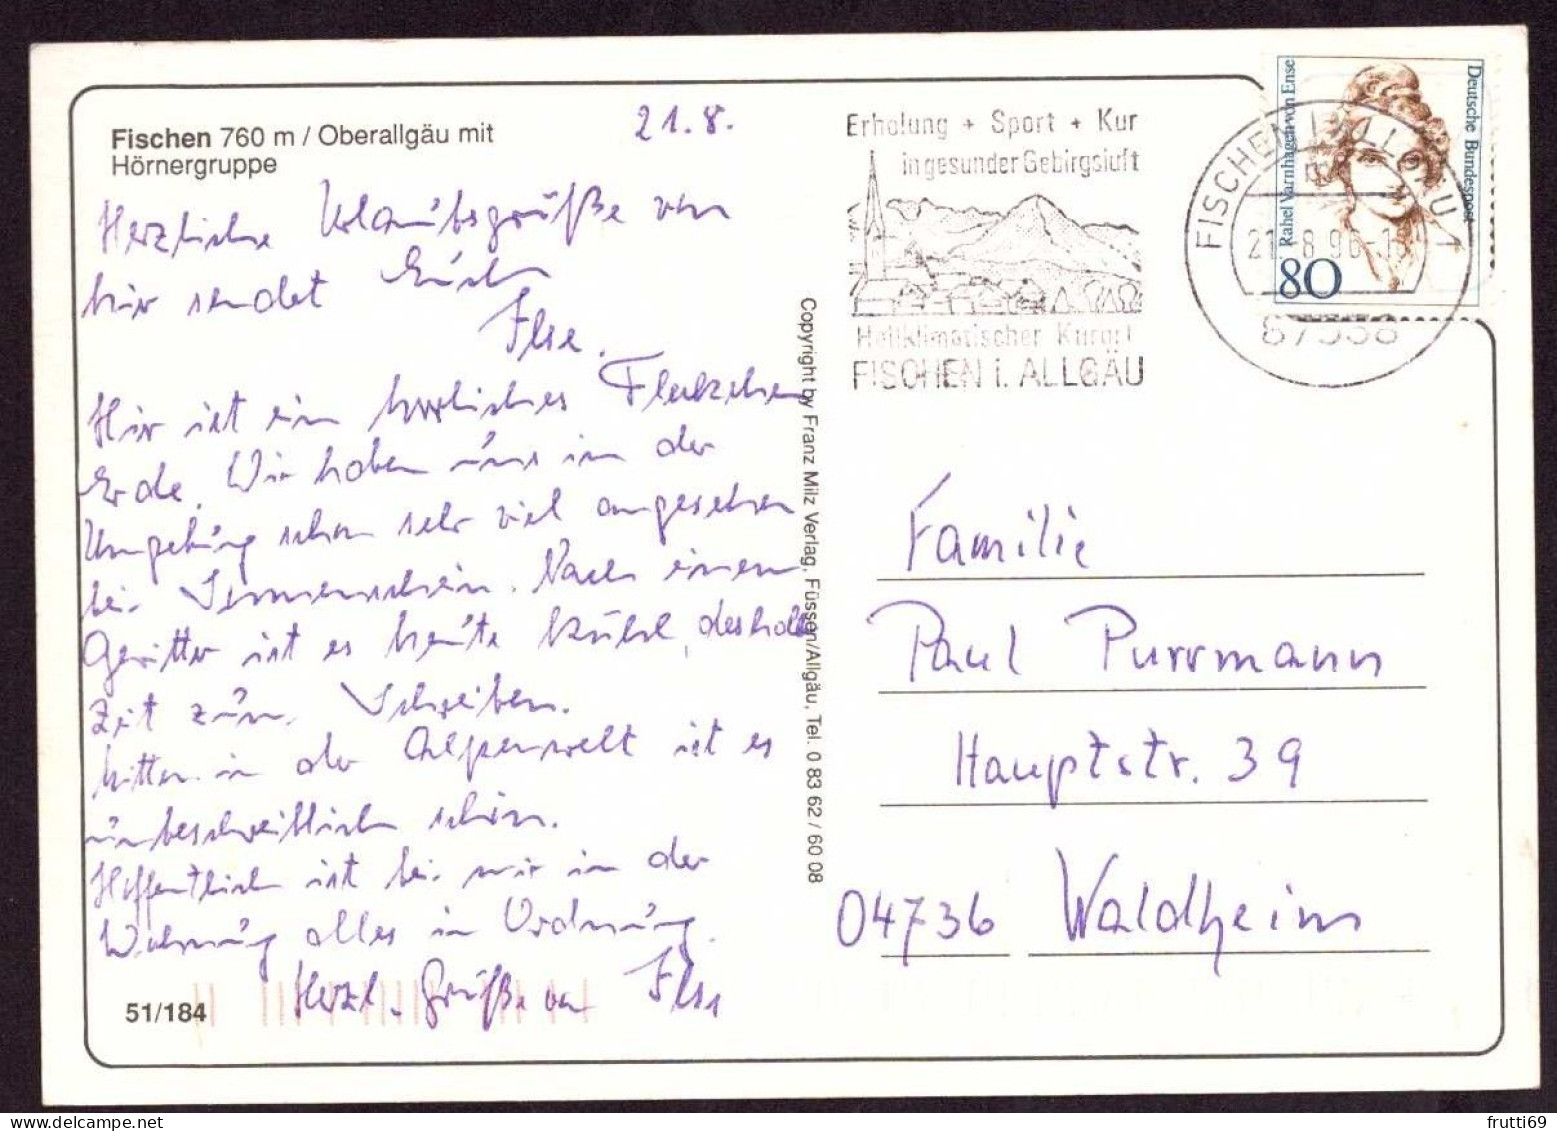 Fischen 760 m / Oberallgäu mit
Hörnergruppe
21.8.
Herzliche Urlaubsgrüße von
hier sendet Euch
Ilse.
Hier ist ein herrliches Fleckchen
Erde. Wir haben uns in der
Umgebung schon sehr viel angesehen
bei Sonnenschein. Nach einem
Gewitter ist es heute kühl, deshalb
Zeit zum Schreiben.
Mitten in der Alpenwelt ist es
unbeschreiblich schön.
Hoffentlich ist bei mir in der
Wohnung alles in Ordnung.
Herzl. Grüße von Ilse
51/184
Copyright by Franz Milz Verlag, Füssen/Allgäu, Tel. 0 83 62 / 60 08
Erholung + Sport + Kur
in gesunder Gebirgsluft
Heilklimatischer Kurort
FISCHEN i. ALLGÄU
FISCHEN i ALLGÄU 1
21.8.96-1
87538
Rahel Varnhagen von Ense
Deutsche Bundespost
80
Familie
Paul Purrmann
Hauptstr. 39
04736 Waldheim
frutti69